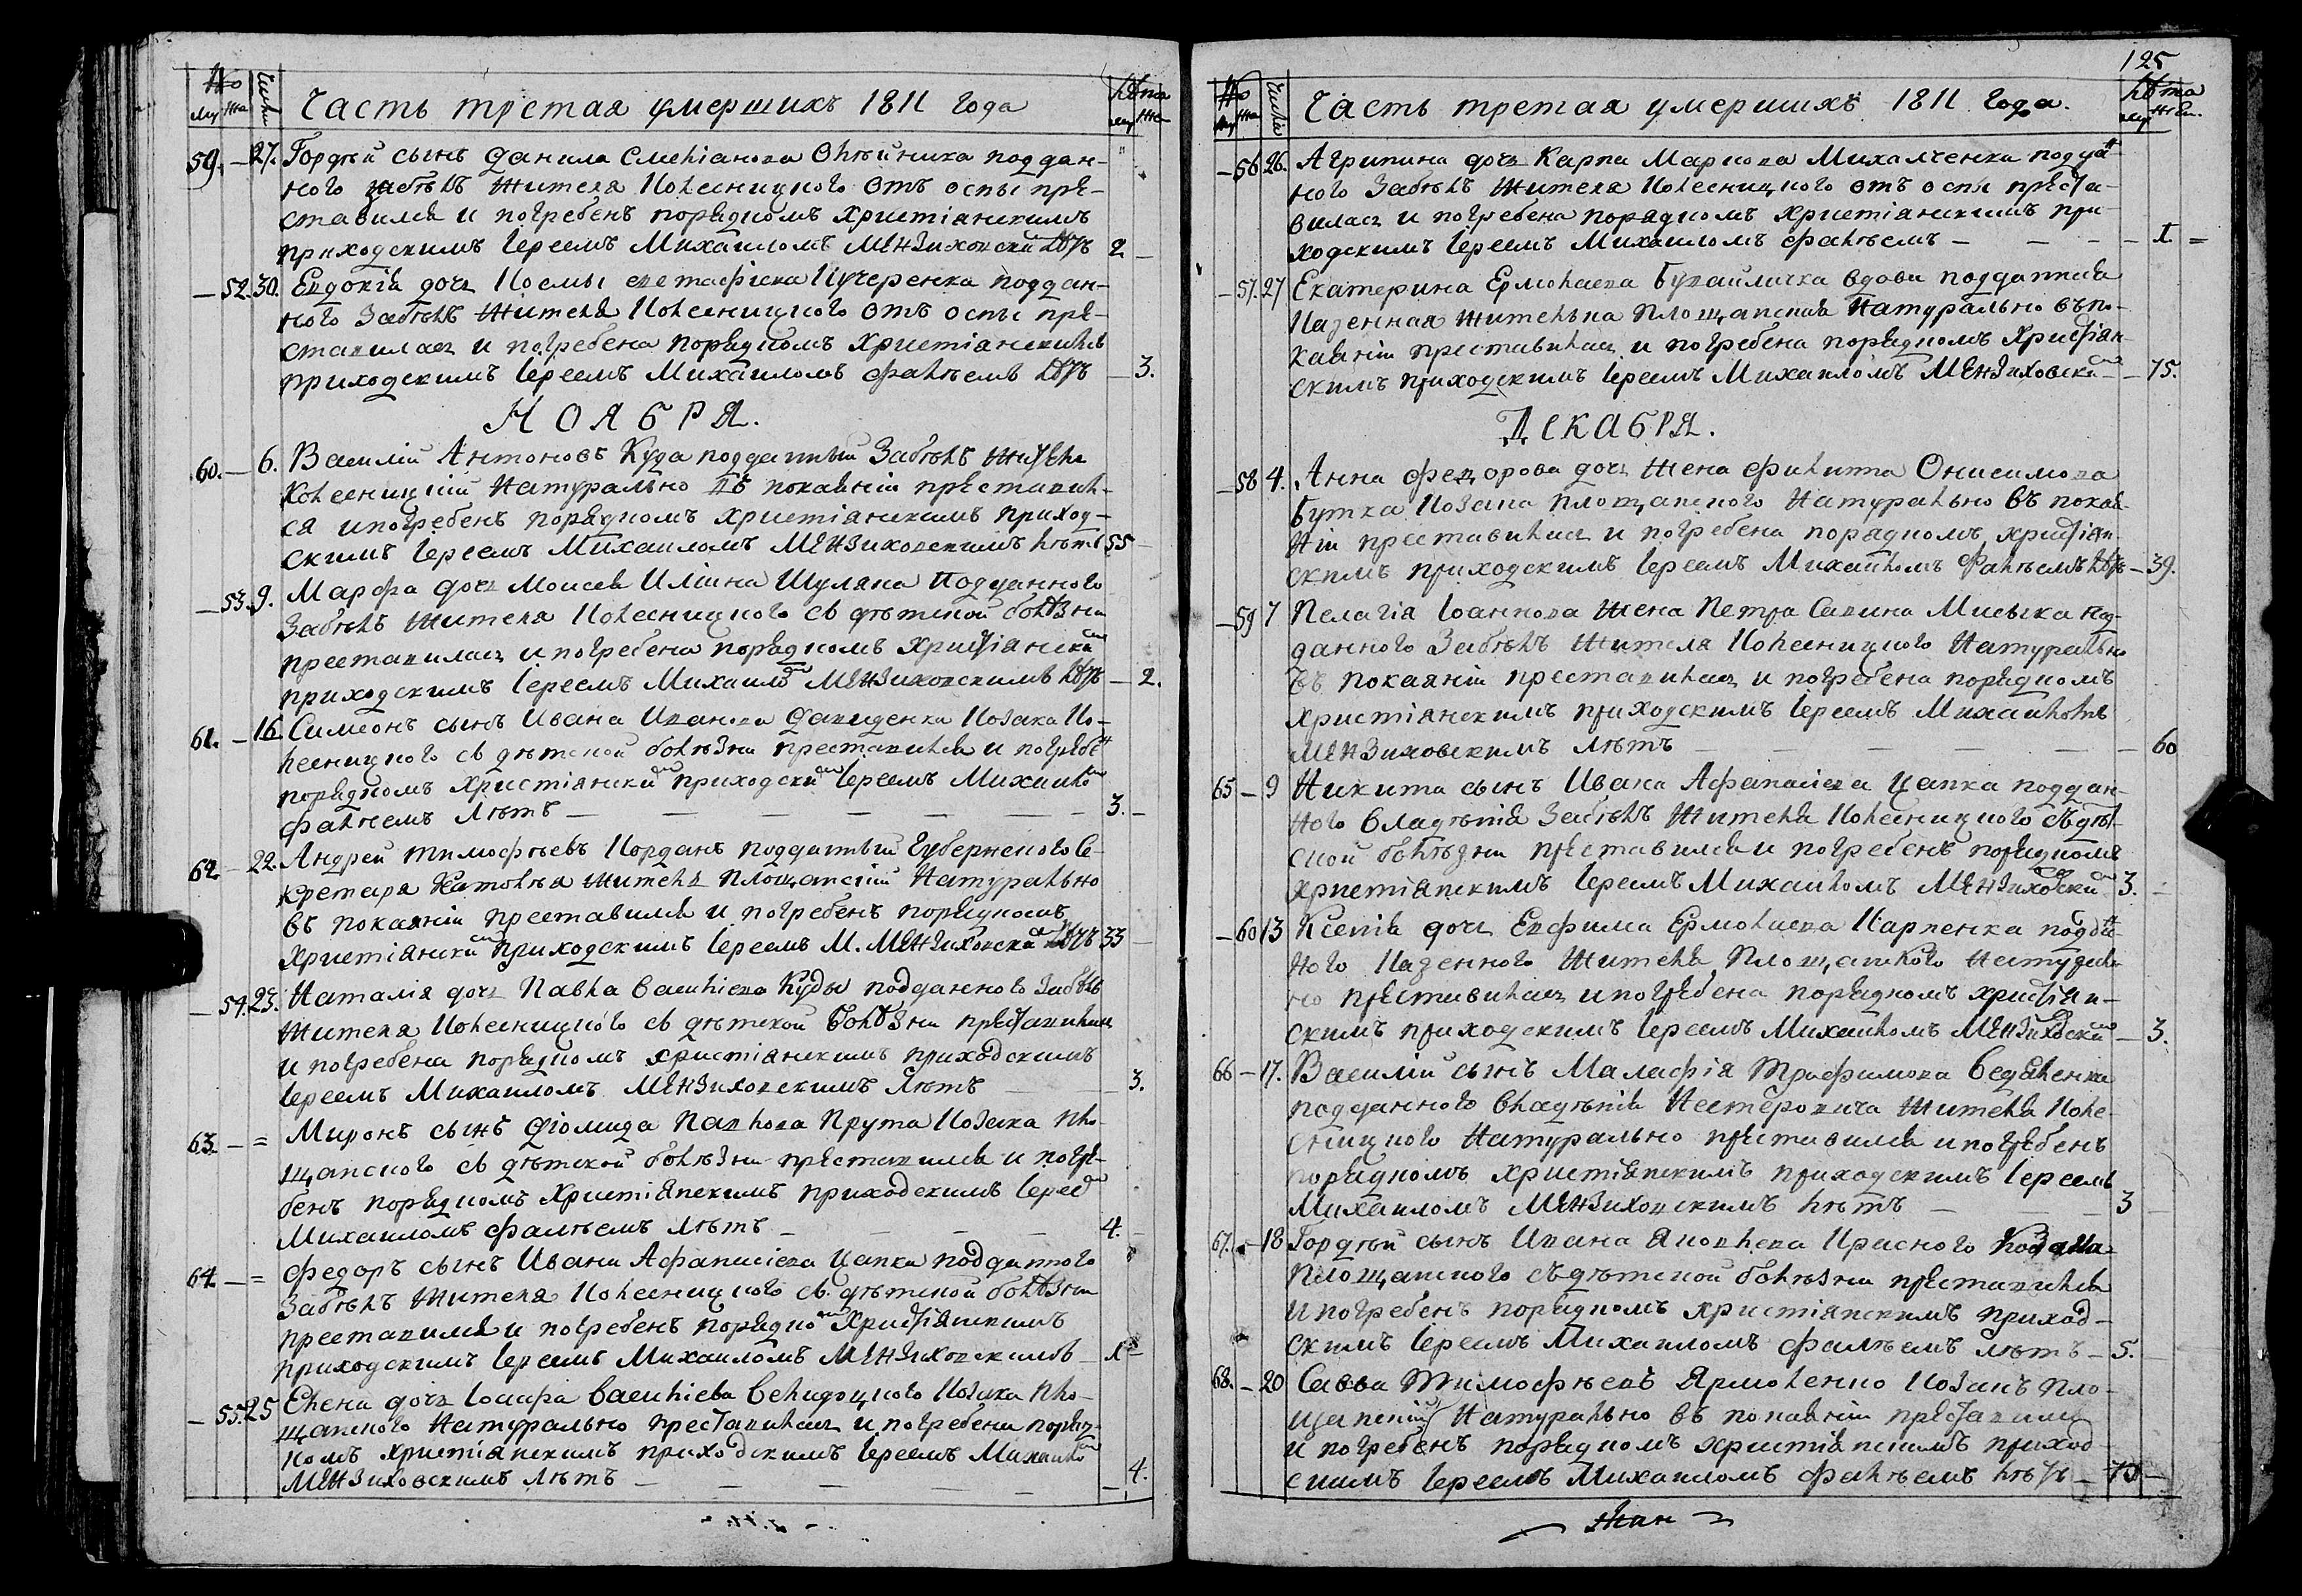 № Числа Часть третая умершихъ 1811 года лѣта
му же му же
59. — 27. Гордѣй сынъ Данила Смеліанова Олѣйника поддан-
ного Забѣлѣ жителя Колесницкого отъ оспы пре-
ставился и погребенъ порядкомъ христіянскимъ
приходскимъ Іереемъ Михаиломъ Мензиховскимъ лѣтъ 2 —
— 52. 30. Евдокія дочь Космы Евстафіева Кучеренка поддан-
ного Забѣлѣ жителя Колесницкого отъ оспы пре-
ставилась и погребена порядкомъ христіянскимъ
приходскимъ Іереемъ Михаиломъ Фалѣемъ лѣтъ — 3.
НОЯБРЯ.
60. — 6. Василій Антоновъ Куда подданный Забѣлѣ житель
Колесницкій натурально въ покаяніи преставил-
ся и погребенъ порядкомъ христіянскимъ приход-
скимъ Іереемъ Михаиломъ Мензиховскимъ лѣтъ 55 —
— 53. 9. Марфа дочь Моисея Иліина Шуляка подданного
Забѣлѣ жителя Колесницкого съ дѣтской болѣзни
преставилась и погребена порядкомъ христіянским
приходскимъ Іереемъ Михаилом Мензиховскимъ лѣтъ — 2.
61. — 16. Симеонъ сынъ Ивана Иванова Давиденка Козака Ко-
лесницкого съ дѣтской болѣзни преставился и погребен
порядкомъ христіянским приходским Іереемъ Михаилом
Фалѣемъ лѣтъ — — — — — — 3. —
62 — 22. Андрей Тимофѣевъ Корданъ подданный Губернского Се-
кретаря житель Площанскій натурально
въ покаяніи преставился и погребенъ порядкомъ
христіянским приходскимъ Іереемъ М. Мензиховским лѣтъ 33 —
— 54. 23. Наталія дочь Павла Василіева Куды подданного Забѣлѣ
жителя Колесницкого съ дѣтской болѣзни преставилась
и погребена порядкомъ христіянскимъ приходскимъ
Іереемъ Михаиломъ Мензиховскимъ лѣтъ — 3.
63. — = Миронъ сынъ Діомида Павлова Прута Козака Пло-
щанского съ дѣтской болѣзни преставился и погре-
бенъ порядкомъ христіянскимъ приходскимъ Іереем
Михаиломъ Фалѣемъ лѣтъ — — — 4. —
64. — = Федоръ сынъ Ивана Афанасіева Цапка подданного
Забѣлѣ жителя Колесницкого съ дѣтской болѣзни
преставился и погребенъ порядком христіянскимъ
приходскимъ Іереемъ Михаиломъ Мензиховскимъ — 1 —
— 55. 25 Елена дочь Іосифа Василіева Козака Пло-
щанского натурально преставилась и погребена поряд-
комъ христіянскимъ приходскимъ Іереемъ Михаилом
Мензиховскимъ лѣтъ — — — — — 4.
125
№ Числа Часть третая умершихъ 1811 года. лѣта
му же му жен.
— 56 26. Агрипина дочь Карпа Маркова Михалченка подда-
ного Забѣлѣ жителя Колесницкого отъ оспы преста-
вилась и погребена порядкомъ христіянскимъ при-
ходскимъ Іереемъ Михаиломъ Фалѣемъ — — — 1 =
— 57. 27 Екатерина Ермолаева вдова подданная
Казенная жителька Площанская натурально въ по-
каяніи преставилась и погребена порядкомъ христіян-
скимъ приходскимъ Іереемъ Михаиломъ Мензиховским — 75.
ДЕКАБРЯ.
— 58 4. Анна Федорова дочь жена Филиппа Онисимова
Бутка Козака Площанского натурально въ покая-
ніи преставилась и погребена порядкомъ христіян-
скимъ приходскимъ Іереемъ Михаиломъ Фалѣемъ лѣтъ — 39.
— 59 7 Пелагія Іоаннова жена Петра Савина Миська под-
данного Забѣлѣ жителя Колесницкого натурально
въ покаяніи преставилась и погребена порядкомъ
христіянскимъ приходскимъ Іереемъ Михаиломъ
Мензиховскимъ лѣтъ — — — — 60
65 — 9 Никита сынъ Ивана Афанасіева Цапка поддан-
ного владѣнія Забѣлѣ жителя Колесницкого съ дѣт-
ской болѣзни преставился и погребенъ порядкомъ
христіянскимъ Іереемъ Михаиломъ Мензиховским 3. —
— 60 13 Ксенія дочь Евфима Ермолаева Карпенка подда-
ного Казенного жителя Площанского натураль-
но преставилась и погребена порядкомъ христіян-
скимъ приходскимъ Іереемъ Михаиломъ Мензиховским — 3.
66 — 17. Василій сынъ Маласфія Трофимова
подданного владѣнія Нестеровича жителя Коле-
сницкого натурально преставился и погребенъ
порядкомъ христіянскимъ приходскимъ Іереемъ
Михаиломъ Мензиховскимъ лѣтъ — — 3
67. — 18 Гордѣй сынъ Ивана Яковлева Красного Козака
Площанского съ дѣтской болѣзни преставился
и погребенъ порядкомъ христіянскимъ приход-
скимъ Іереемъ Михаиломъ Фалѣемъ лѣтъ — 5.
68. — 20 Савва Тимофѣевъ Ярмоленко Козакъ Пло-
щанскій натурально въ покаяніи преставился
и погребенъ порядкомъ христіянскимъ приход-
скимъ Іереемъ Михаиломъ Фалѣемъ лѣтъ —